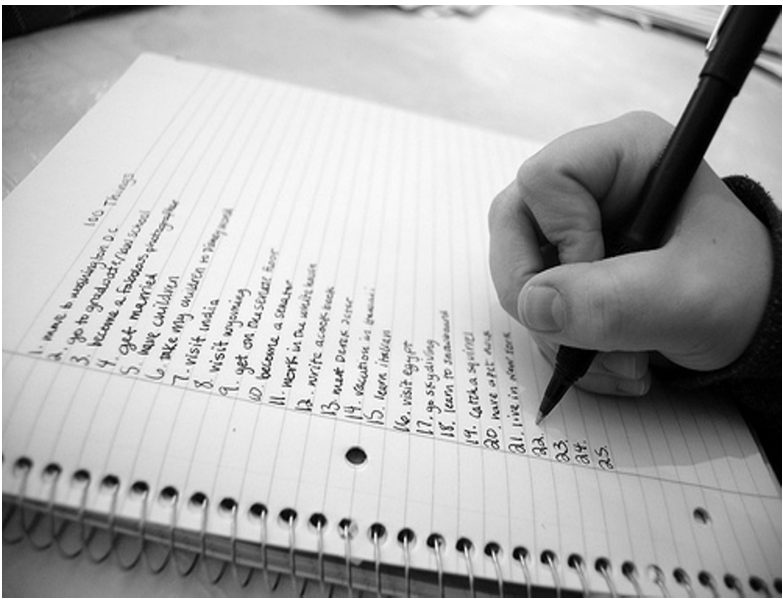 100 Things
1. move to washington D.C.
2. go to graduate/law school
3. become a fabulous photographer
4.
5. get married
6. have children
take my children to disney world
7. visit india
8. visit wyoming
9. get on the senate floor
10. become a senator
11. work in the white house
12. write a cook book
13. meet Derek Jeter
14. vacation in hawaii
15. learn italian
16. visit egypt
17. go skydiving
18. learn to snowboard
19. catch a squirrel
20. have a pet duck
21. live in new york
22.
23.
24.
25.